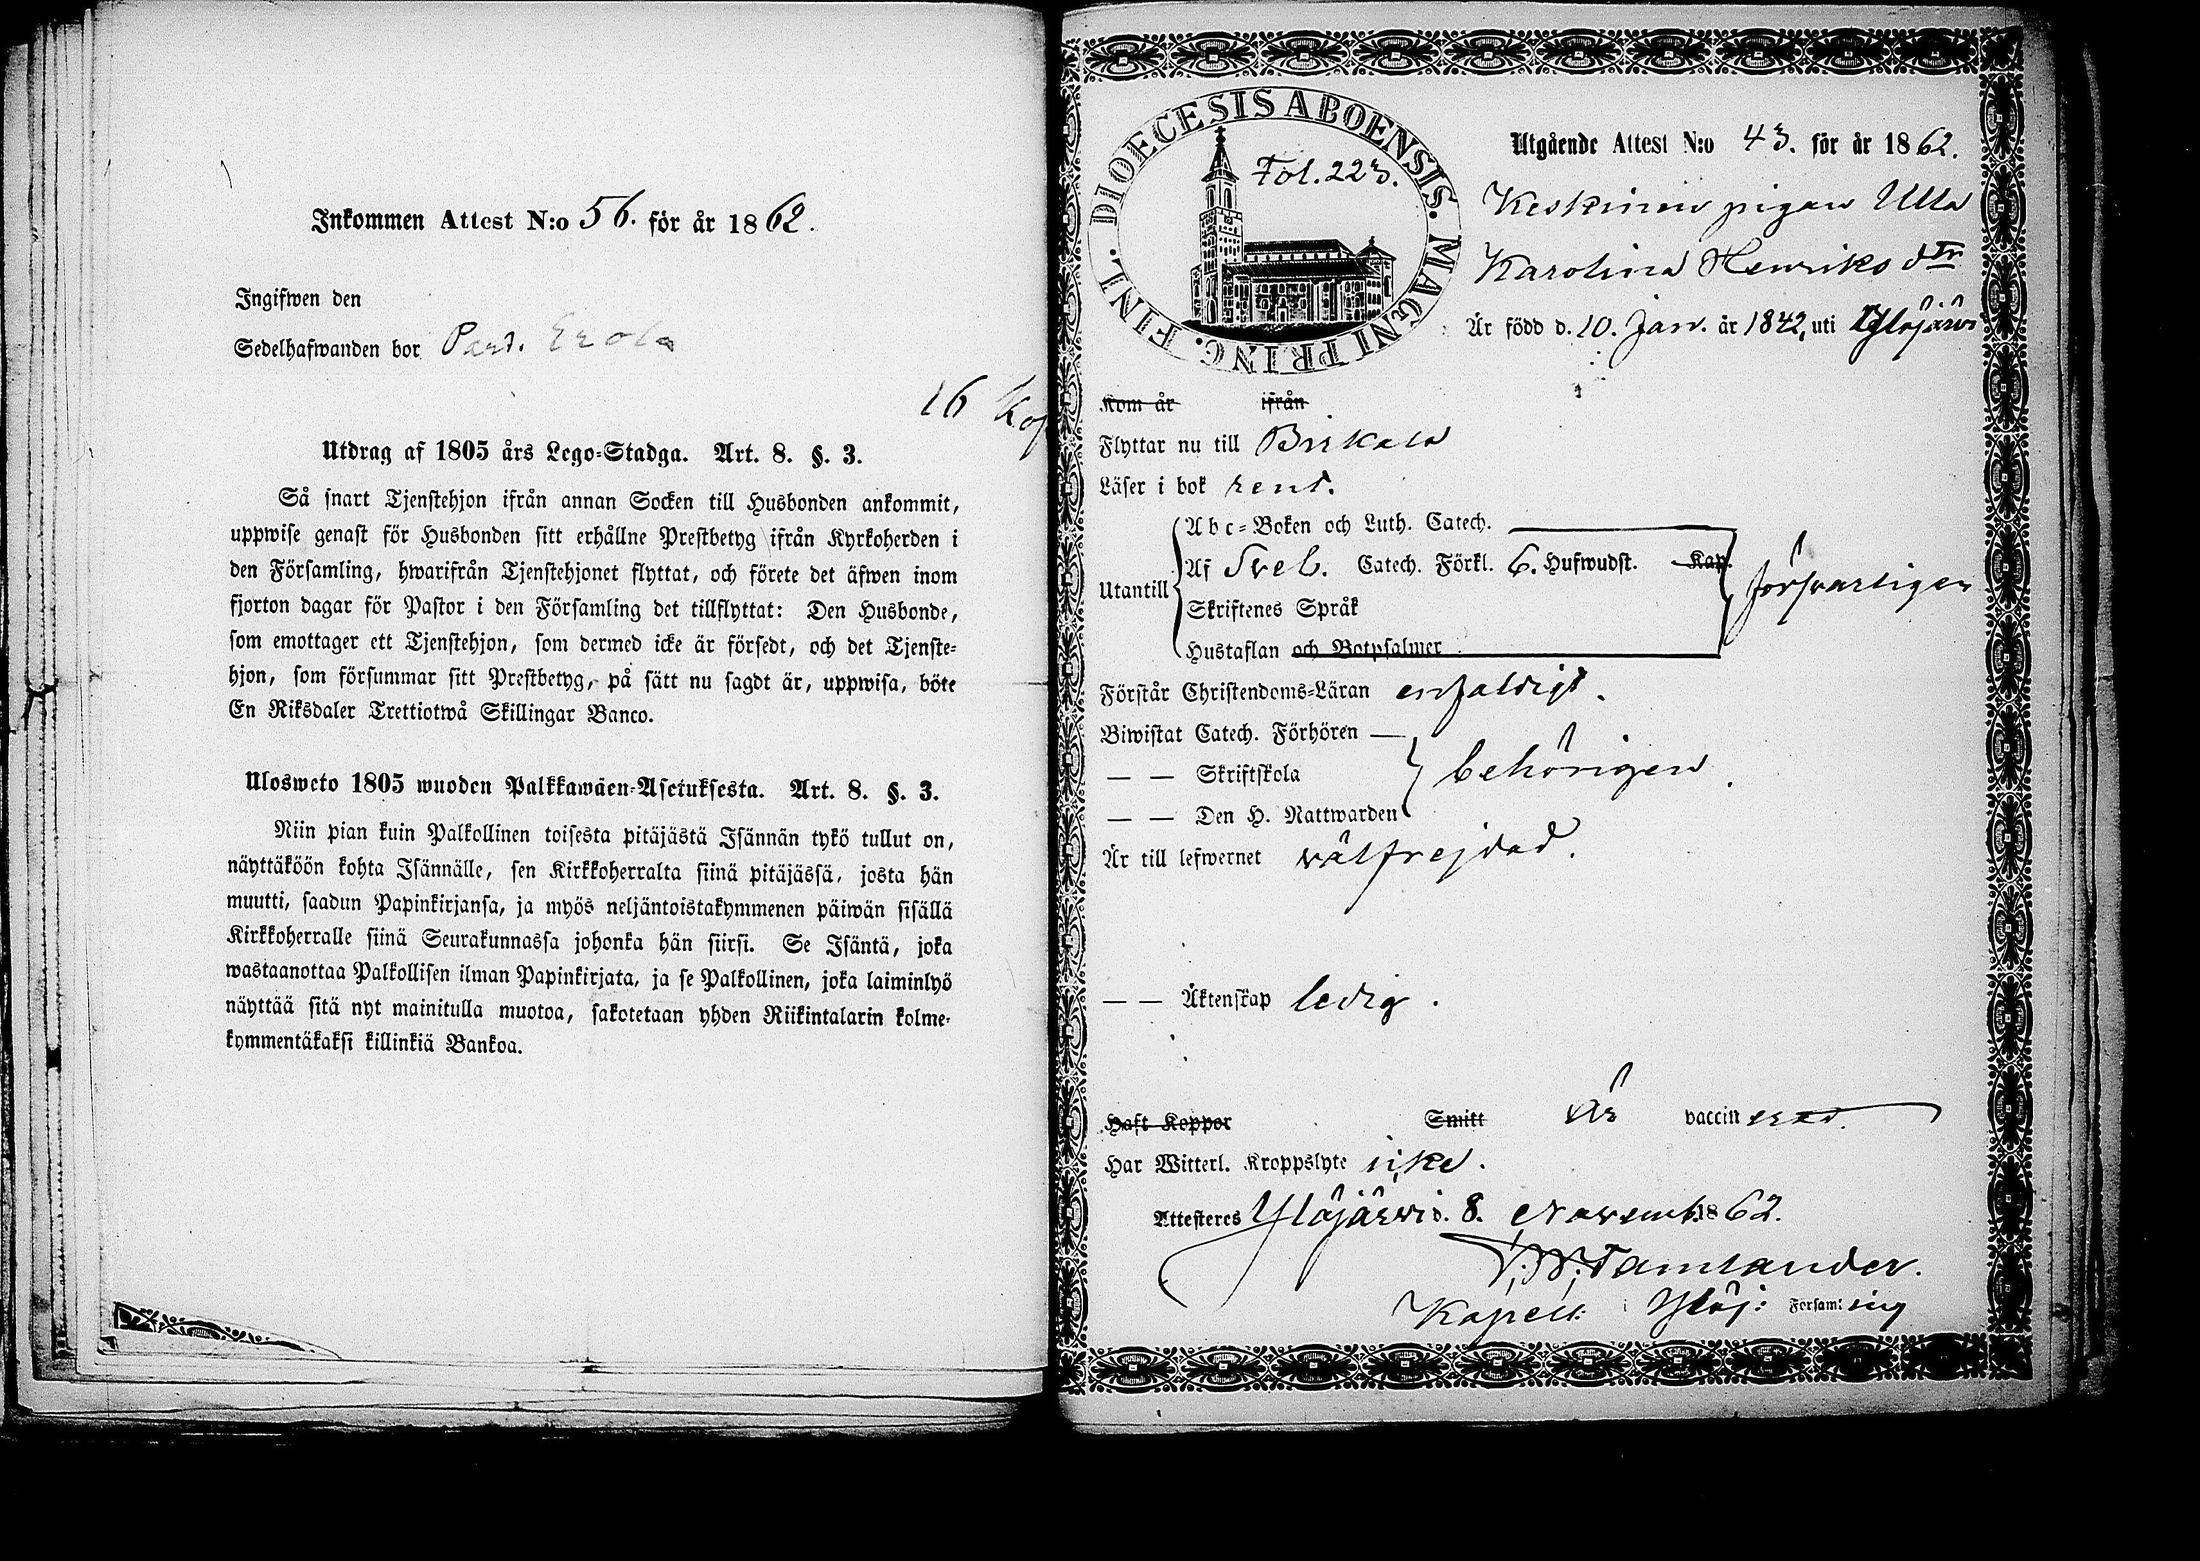 Inkommen Attest N:o 56. för år 1862.
Ingifwen den
Sedelhafwanden bor Pard. Erola
16 Kop
Utdrag af 1805 års Lego-Stadga. Art. 8. §. 3.
Så snart Tjenstehjon ifrån annan Socken till Husbonden ankommit,
uppwise genast för Husbonden sitt erhållne Prestbetyg ifrån Kyrkoherden i
den Församling, hwarifrån Tjenstehjonet flyttat, och förete det äfwen inom
fjorton dagar för Pastor i den Församling det tillflyttat: Den Husbonde,
som emottager ett Tjenstehjon, som dermed icke är försedt, och det Tjenste-
hjon, som försummar sitt Prestbetyg, på sätt nu sagdt är, uppwisa, böte
En Riksdaler Trettiotwå Skillingar Banco.
Ulosweto 1805 wuoden Palkkawäen-Asetuksesta. Art. 8. §. 3.
Niin pian kuin Palkollinen toisesta pitäjästä Isännän tykö tullut on,
näyttäköön kohta Isännälle, sen Kirkkoherralta siinä pitäjässä, josta hän
muutti, saadun Papinkirjansa, ja myös neljäntoistakymmenen päiwän sisällä
Kirkkoherralle siinä Seurakunnassa johonka hän siirsi. Se Isäntä, joka
wastaanottaa Palkollisen ilman Papinkirjata, ja se Palkollinen, joka laiminlyö
näyttää sitä nyt mainitulla muotoa, sakotetaan yhden Riikintalarin kolme-
kymmentäkaksi killinkiä Bankoa.
DIOECESIS ABOENSIS. MAGNI PRINC. FINL.
Fol. 223.
Utgående Attest N:o 43. för år 1862.
Keskinen pigan Ulla
Karolina Henriks dtr
Är född d. 10. Jan. år 1842, uti Ylöjärvi
Kom år ifrån
Flyttar nu till Birkala
Läser i bok rent.
Utantill
Abc-Boken och Luth. Catech.
Af Sveb. Catech. Förkl. 6. Hufwudst. Kap.
Skriftenes Språk
Hustaflan och Botpsalmer
försvarligen
Förstår Christendoms-Läran enfaldigt.
Biwistat Catech. Förhören —
— — Skriftskola
— — Den H. Nattwarden
behörigen.
Är till lefwernet välfrejdad.
— — Äktenskap ledig.
Haft Koppor Smitt Är vaccinerad.
Har Witterl. Kroppslyte icke.
Attesteres Ylöjärvi d. 8. Novemb. 1862.
Tamlander.
Kapell. i Ylöj: Församling